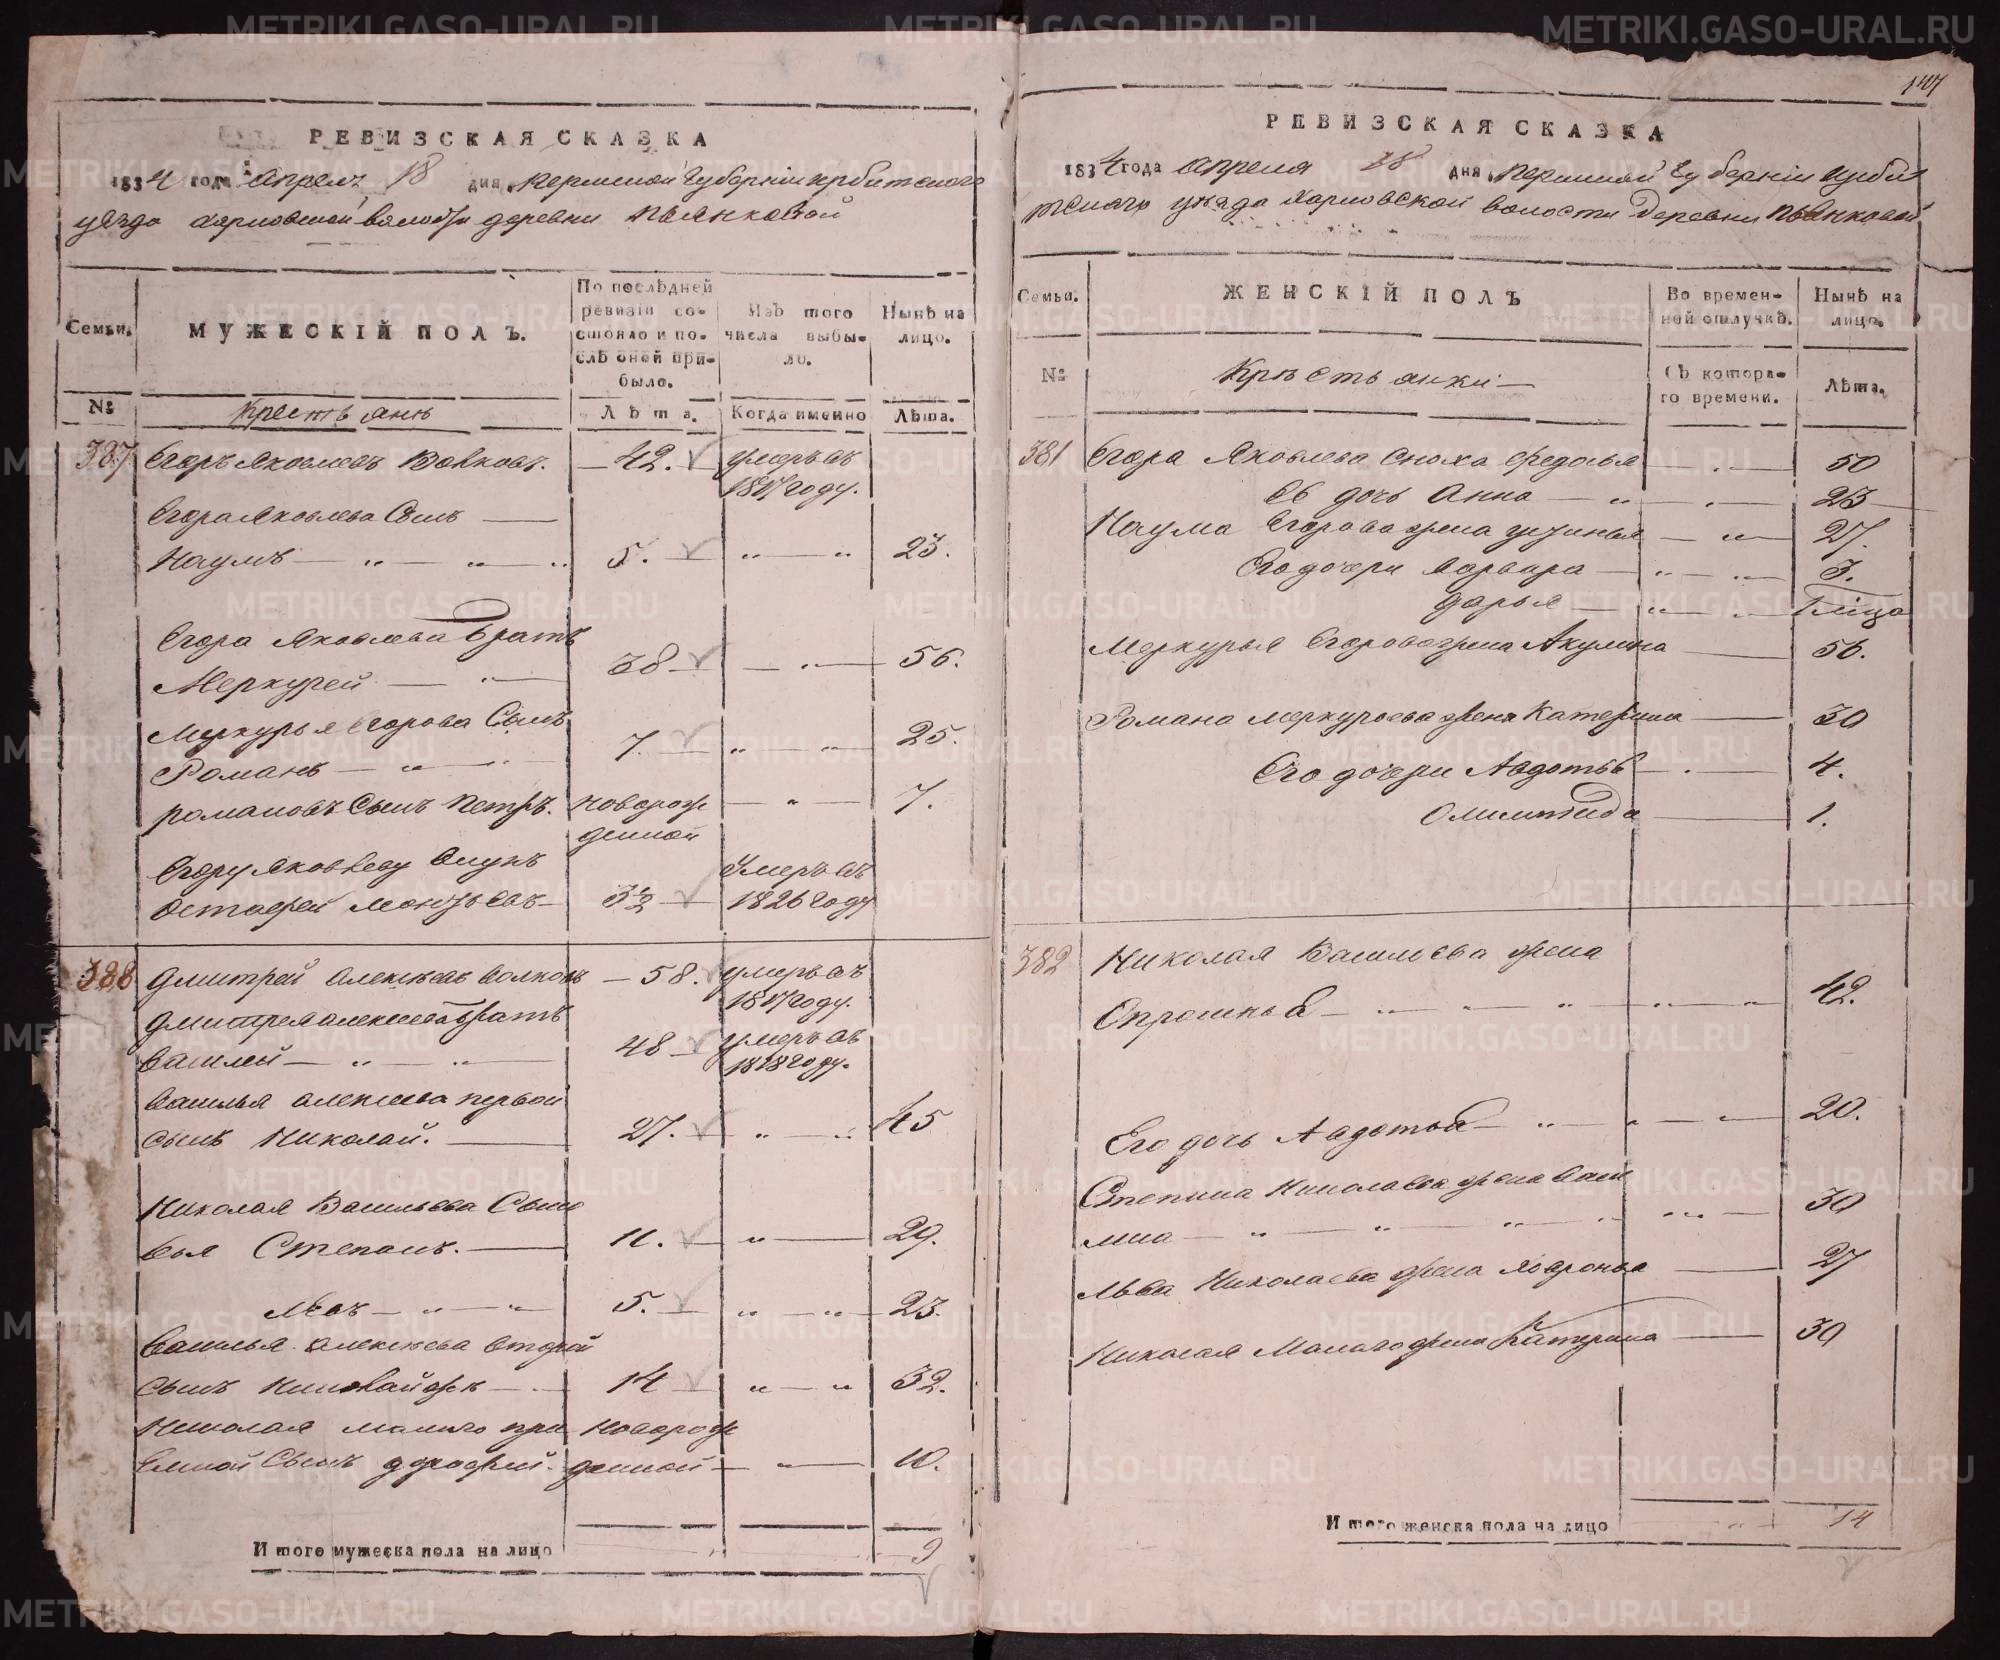 РЕВИЗСКАЯ СКАЗКА
1834 года апреля 18 дня Пермской губернии Ирбитского
уезда Харловской волости деревни Пьянковой
Семьи.
МУЖЕСКІЙ ПОЛЪ.
По послѣдней
ревизіи со-
стояло и по-
слѣ оной при-
было.
Изъ того
числа выбы-
ло.
Нынѣ на
лицо.
№
крестьяне
Лѣта.
Когда именно
Лѣта.
387 Егоръ Яковлевъ Волковъ. — 42. умеръ въ
1817 году.
Егора Яковлева Сынъ
Наумъ 5. 23.
Егора Яковлева Братъ
Меркурей 38 56.
Меркурья Егорова Сынъ
Романъ 7. 25.
романовъ Сынъ Петръ. новорож 7.
денной
Егору Яковлеву внукъ умеръ въ
Остафей 3½ 1826 году
388 Дмитрей алексеевъ волковъ — 58. умеръ въ
1817 году.
Дмитрея алексеева братъ
василей 48 умеръ въ
1828 году.
василья алексеева первой
сынъ Николай. 27. 45
Николая Васильева Сыно
вья Степанъ. 11. 29.
Левъ 5. 23.
василья алексеева второй
сынъ николай же 14 32.
Николая малаго при новорож
емной Сынъ дорофей. денной 10.
Итого мужеска пола на лицо 9
147
РЕВИЗСКАЯ СКАЗКА
1834 года апреля 18 дня Пермской Губерніи Ирби
тскаго уезда Харловской волости деревни Пьянковой
Семьи.
ЖЕНСКІЙ ПОЛЪ
Во времен-
ной отлучкѣ.
Нынѣ на
лицо.
№
Крестьянки
Съ котора-
го времени.
Лѣта.
381 Егора Яковлева сноха Федосья 50
Её дочь Анна 23
Наума Егорова жена устинья 27.
Его дочери варвара 3.
дарья
Меркурья Егорова жена Акулина 56.
Романа меркурьева жена Катерина 30
Его дочери Авдотья 4.
Олимпиада 1.
382 Николая Васильева жена
Опросинья 42.
Его дочь Авдотья 20.
Степана Николаева жена васи
лиса 30
Льва Николаева жена Ховронья 27
Николая Малаго жена Катерина 30
Итого женска пола на лицо 14
METRIKI.GASO-URAL.RU